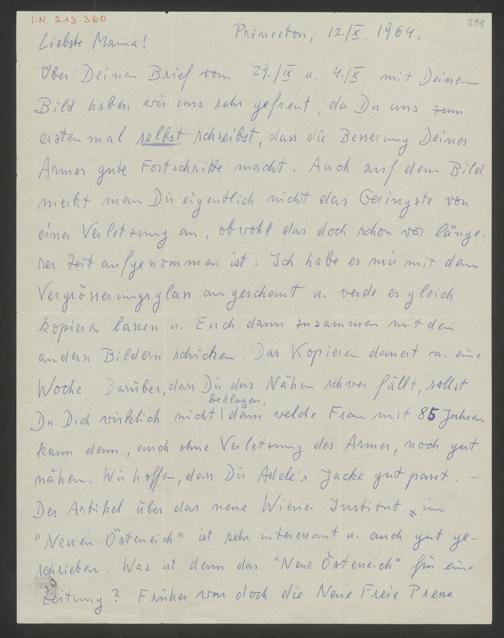 I.N. 213.360
211
Princeton, 12./X. 1964.
Liebste Mama!
Über Deinen Brief vom 29./IX u. 4./X. mit Deinem
Bild haben wir uns sehr gefreut, da Du uns zum
ersten mal selbst schreibst, dass die Besserung Deines
Armes gute Fortschritte macht. Auch auf dem Bild
merkt man Dir eigentlich nicht das Geringste von
einer Verletzung an, obwohl das doch schon vor länge-
rer Zeit aufgenommen ist. Ich habe es mir mit dem
Vergrösserungsglas angeschaut u. werde es gleich
kopieren lassen u. Euch dann zusammen mit den
andern Bildern schicken. Das Kopieren dauert ca. eine
Woche. Darüber, dass Dir das Nähen schwer fällt, sollst
Du Dich wirklich nicht beklagen, denn welche Frau mit 85 Jahren
kann denn, auch ohne Verletzung des Armes, noch gut
nähen. Wir hoffen, dass Dir Adele's Jacke gut passt. –
Der Artikel über das neue Wiener Institut im
"Neuen Österreich" ist sehr interessant u. auch gut ge-
schrieben. Was ist denn das "Neue Österreich" für eine
Zeitung? Früher war doch die Neue Freie Presse